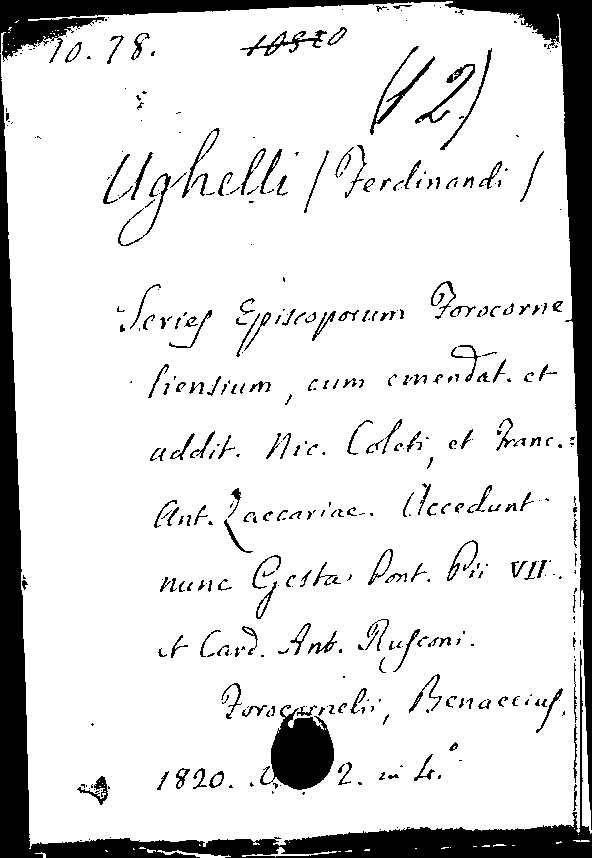 10.78. 10820
(12)
Ughelli (Ferdinandi)
Series Episcoporum Forocorne-
liensium, cum emendat. et
addit. Nic. Coleti, et Franc.
Ant. Zaccariae. Accedunt
nunc Gesta Pont. Pii VII.
et Card. Ant. Rusconi.
Forocornelii, Benaccius,
1820. 2. in 4.°